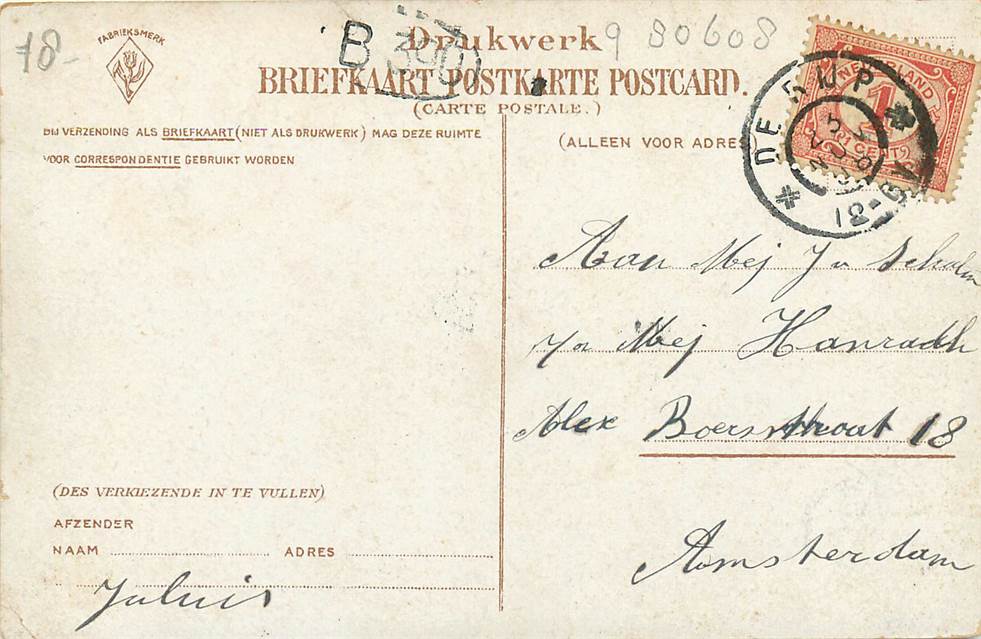 78-
FABRIEKSMERK
Drukwerk
B 300
9 80608
BRIEFKAART POSTKARTE POSTCARD.
(CARTE POSTALE.)
BIJ VERZENDING ALS BRIEFKAART (NIET ALS DRUKWERK) MAG DEZE RUIMTE
VOOR CORRESPONDENTIE GEBRUIKT WORDEN
(ALLEEN VOOR ADRES)
NEDERLAND
1
CENT
DE RIJP
Aan Mej
p/a Mej Hanradth
Alex Boersstraat 18
Amsterdam
(DES VERKIEZENDE IN TE VULLEN)
AFZENDER
NAAM ADRES